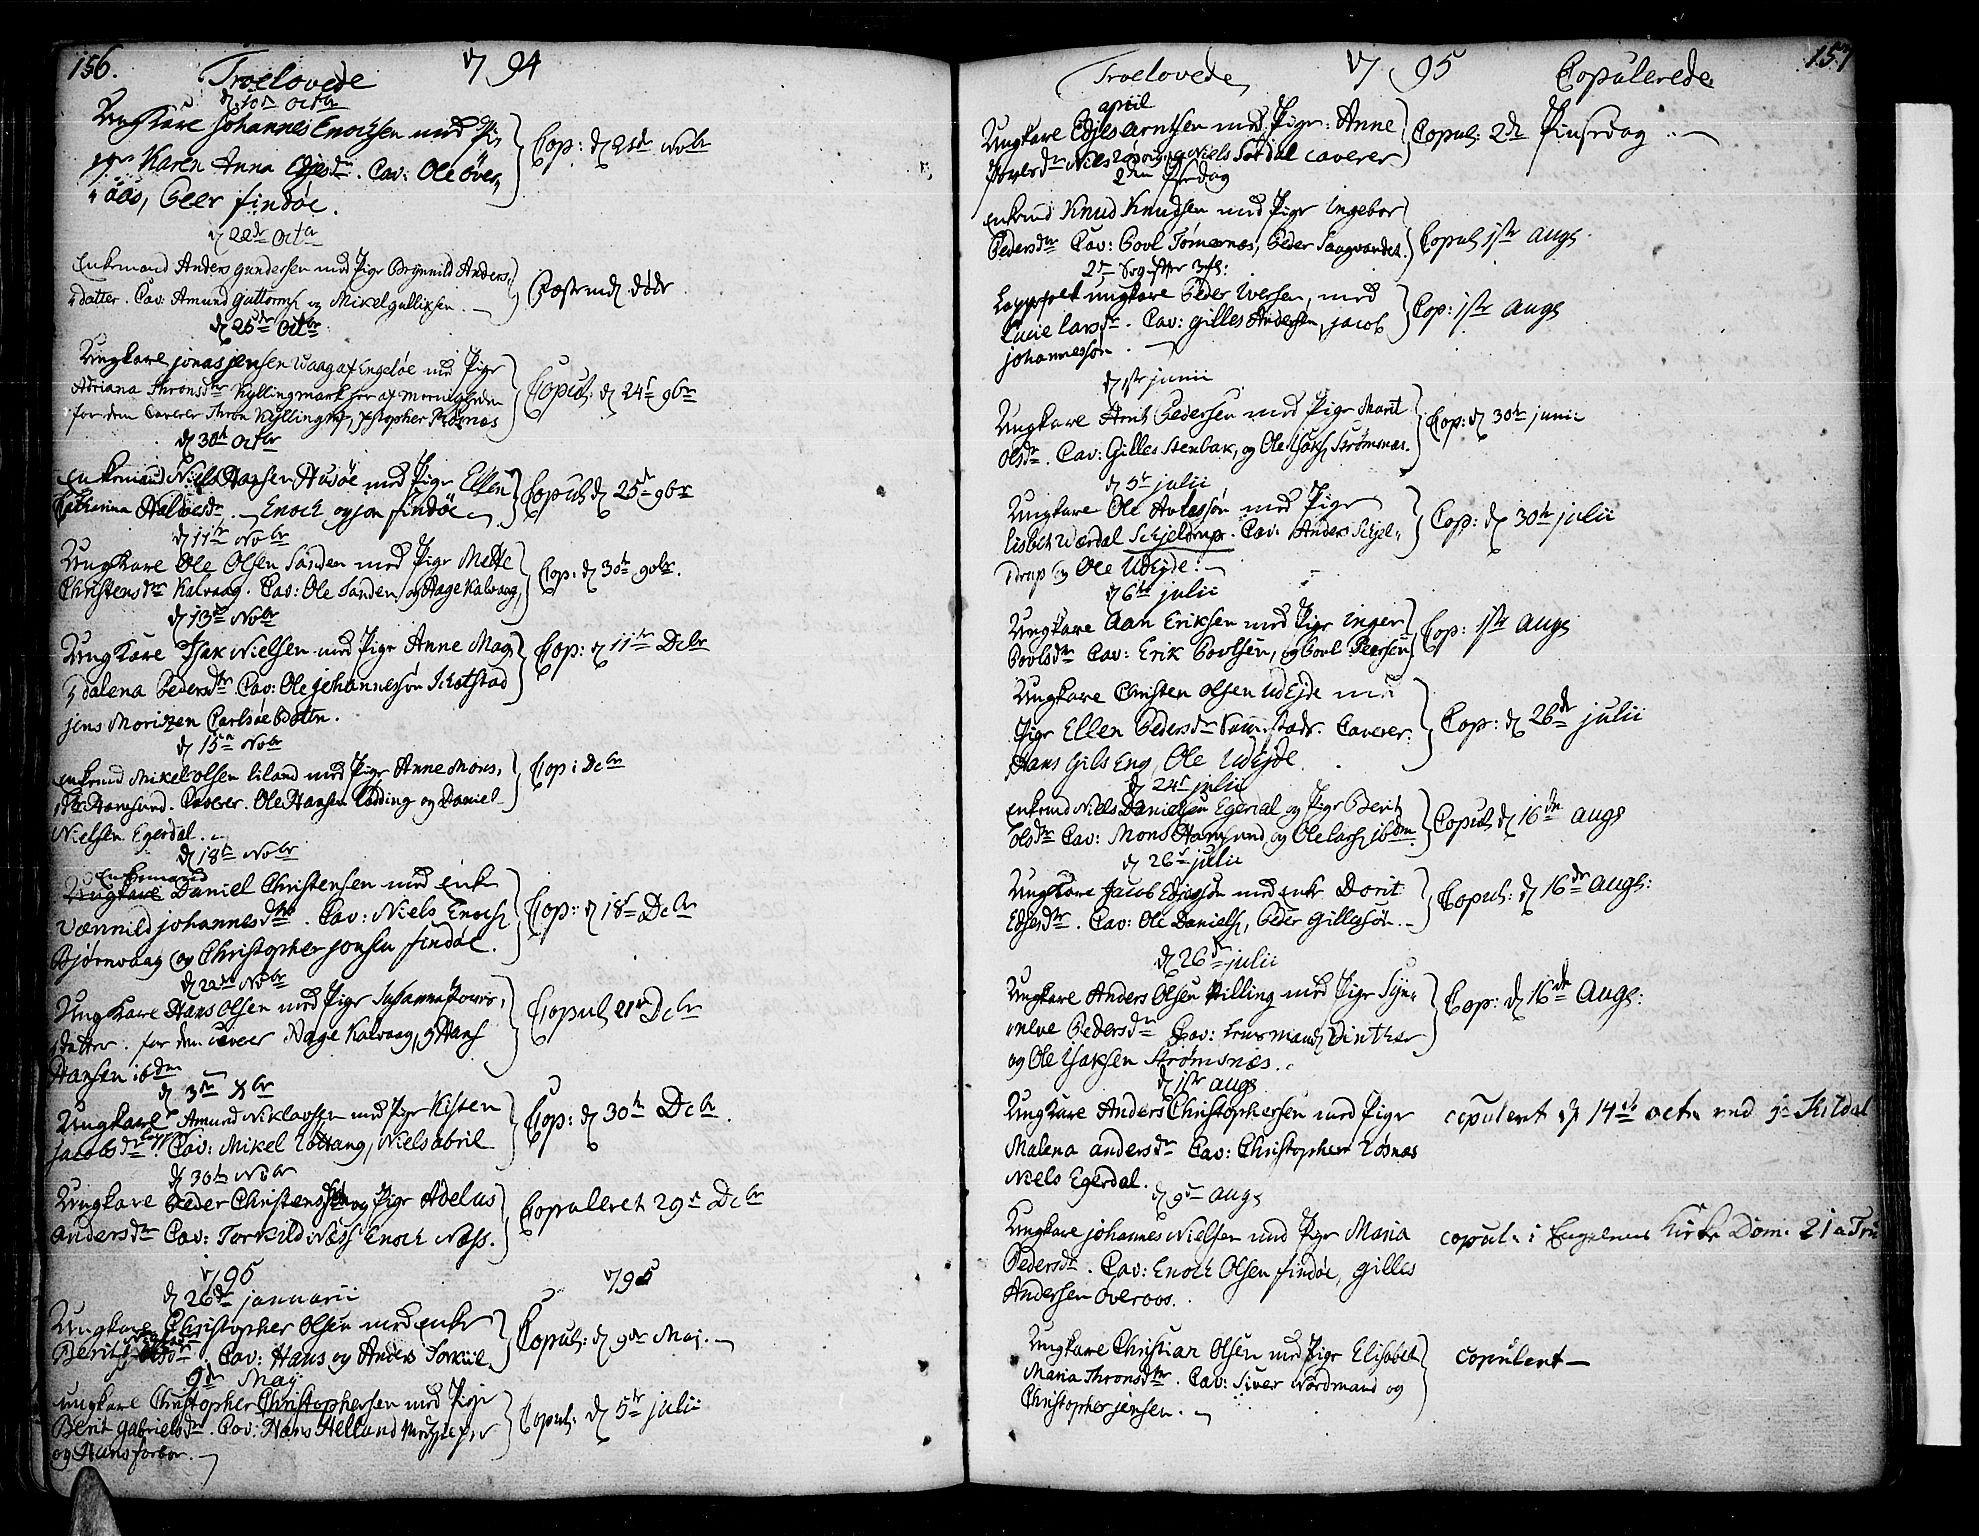 156.
Troelovede 1794
d 10de Octbr
Ungkare Johannes Enochsen med Pi
ger Karen Anna Edjesdr. Cav: Ole Över-
aas, Peer Findöe.
Cop: d 21de Nobr
d 22de Octbr
Enkemand Anders Gundersen med Pige Brynnild Anders,
datter. Cav: Amund Guttorms og Mikel Gulliksen.
Fæstemd döde
d 25de Octbr
Ungkare Jonas Jensen Waag af Engelöe med Pige
Adriana Thronsdtr Kyllingmark her af Menigheden
for dem Caverer Thron Kyllingmk, Xstopher
Copul: d 24de 9br
d 30te Octbr
Enkemand Niels Hansen Husöe med Pige Ellen
Catharina Halvesdr. Enoch og Jon Findöe
Copul d 25de 9br
d 11te Nobr
Ungkare Ole Olsen Sanden med Pige Mette
Christensdtr Kalvaag. Cav: Ole Sanden og Aage Kalvaag,
Cop: d 30te 9obr.
d 13de Nobr
Ungkare Isak Nielsen med Pige Anne Mag
dalena Pedersdtr. Cav: Ole Johannessön Skotstad
Jens Moritzen Carlsöe Boten.
Cop: d 11te Decbr
d 15de Nobr
Enkemd Mikel Olsen Liland med Pige Anne Mons,
dtr Hamsund. Caverer. Ole Hansen Lödding og Daniel
Nielsen Egerdal.
Cop: Decbr
d 18de Nobr
Enkemand
Ungkare Daniel Christensen med Enke
Vænnild Johannesdtr. Cav: Niels Enochs
Björnvaag og Christopher Jonsen Findöe.
Cop: d 18de Decbr
d 22de Nobr
Ungkare Hans Olsen med Pige Susanna Povels,
datter. for dem Caverer Aage Kalvaag, og Hans
Hansen ibdm
Copul 21de Decbr
d 3de Xbr
Ungkare Amund Niklaosen med Pige Kisten
Jacobsdr Cav: Mikel Lottang, Niels Abril
Cop: d 30te Decbr.
d 30te Nobr
Ungkare Peder Christensen og Pige Adelus
Andersdtr Cav: Torkild Næss Enoch Næss.
Copuleret 29de Decbr
1795
1795
d 26de Januarii
Ungkare Christopher Olsen med Enke
Berit Olsdr. Cav: Hans og Anders Torkiil
Copul: d 9de Maj.
9de Maij
Ungkare Christopher Christophersen med Pige
Berit Gabrielsdr. Cav: Hans Helland
og Hans Forbor.
Copul: d 5te Julii
157
Troelovede 1795 Copulerede
April
Ungkare Edjes Arntsen med Pige: Anne
Povelsdr Niels og Niels Sördal caverer
Copul: 2den Pinsedag
2den Psedag
Enkemd Knud Knudsen med Pige Ingebor
Pedersdtr Cav: Povl Tömernes, Peder Saagvandet.
Copul 1ste Augs
2den Søg after 3fl:
Lappfolk Ungkare Peder Iversen, med
Lucie Larsdr. Cav: Gilles Andersen, Jacob
Johannessön.
Cop: 1ste Augs
d 1ste Junii
Ungkare Arnt Pedersen med Pige Marit
Olsdr. Cav: Gilles Stenbak, og Ole Isaks Strömsnes.
Cop: d 30te Junii
d 5te Julii
Ungkare Ole Avlessön med Pige
Lisbet Werdal Schjeldrup. Cav: Anders Schjel-
drup og Ole Udejde.
Cop: d 30te Julii
d 6te Julii
Ungkare Aan Eriksen med Pige Inger
Povlsdtr Cav: Erik Povlsen, og Povl Peersen
Cop: 1ste Augs
Ungkare Christen Olsen Udejde med
Pige Ellen Pedersdr. Caverer:
Hans Gils Eng, Ole Udejde.
Cop: d 26de Julii
d 24de Julii
Enkemd Niels Danielsen Egerdal og Pige Berit
Olsdtr Cav: Mons Hamsund, og Ole Larss ibdm.
Copul d 16de Augs
d 26de Julii
Ungkare Jacob Edjessön med Enke Dorit
Edjesdtr. Cav: Ole Daniels, Peder Gillessön.
Copul: d 16de Augs:
d 26de Julii
Ungkare Anders Olsen Pilling med Pige Syn-
neve Pedersdr Cav: Lensmand Vinther
og Ole Isaksen Strömsnæs.
Cop: d 16de Augs:
d 1ste Augs
Ungkare Anders Christophersen med Pige
Malena Andersdr Cav: Christopher Lösnæs
Niels Egerdal.
copuleret d 14de octr ved Hr Kildal
d 9de Augs
Ungkare Johannes Nielsen med Pige Maria
Pedersdr. Cav: Enoch Olsen Findöe, Gilles
Andersen Overaas.
copul. i Engelöens Kirke Dom. 21 a Tri
Ungkare Christian Olsen med Pige Elisabet
Maria Thronsdtr. Cav: Siver Nordmand og
Christopher Jensen.
copuleret